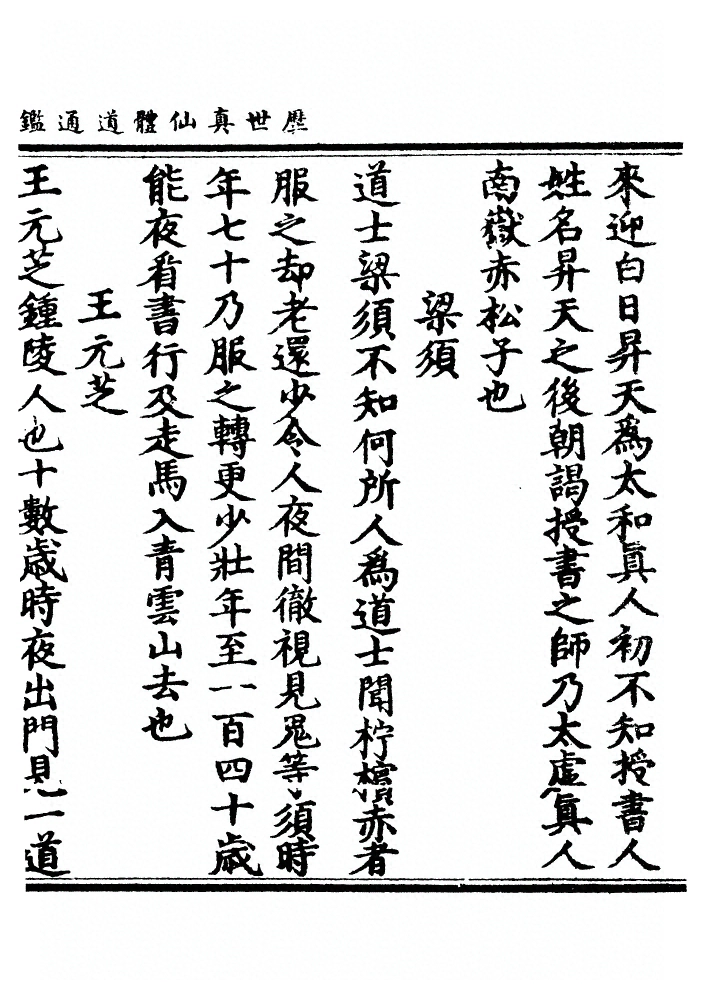 歷世真仙體道通鑑
來迎白日昇天爲太和眞人初不知授書人
姓名昇天之後朝謁授書之師乃太虛眞人
南嶽赤松子也
梁須
道士梁須不知何所人爲道士聞柠檳赤者
服之却老還少令人夜間徹視見鬼等須時
年七十乃服之轉更少壯年至一百四十歲
能夜看書行及走馬入青雲山去也
王元芝
王元芝鍾陵人也十數歲時夜出門見一道